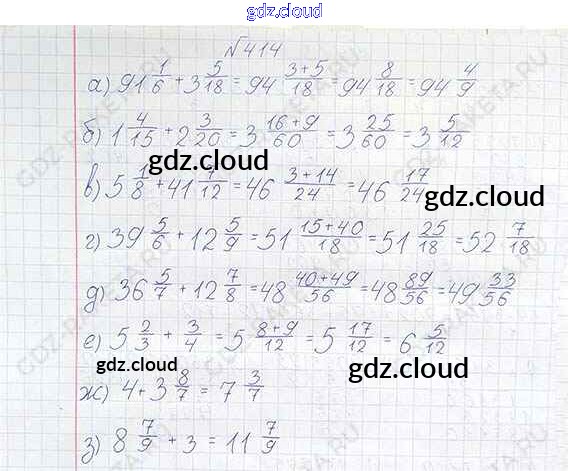 gdz.cloud
№414
а) 91 1/6 + 3 5/18 = 94 3+5/18 = 94 8/18 = 94 4/9
б) 1 4/15 + 2 3/20 = 3 16+9/60 = 3 25/60 = 3 5/12
gdz.cloud
в) 5 1/8 + 41 7/12 = 46 3+14/24 = 46 17/24
gdz.cloud
г) 39 5/6 + 12 5/9 = 51 15+40/18 = 51 25/18 = 52 7/18
д) 36 5/7 + 12 7/8 = 48 40+49/56 = 48 89/56 = 49 33/56
е) 5 2/3 + 3/4 = 5 8+9/12 = 5 17/12 = 6 5/12
gdz.cloud
ж) 4 + 3 8/7 = 7 3/7
з) 8 7/9 + 3 = 11 7/9